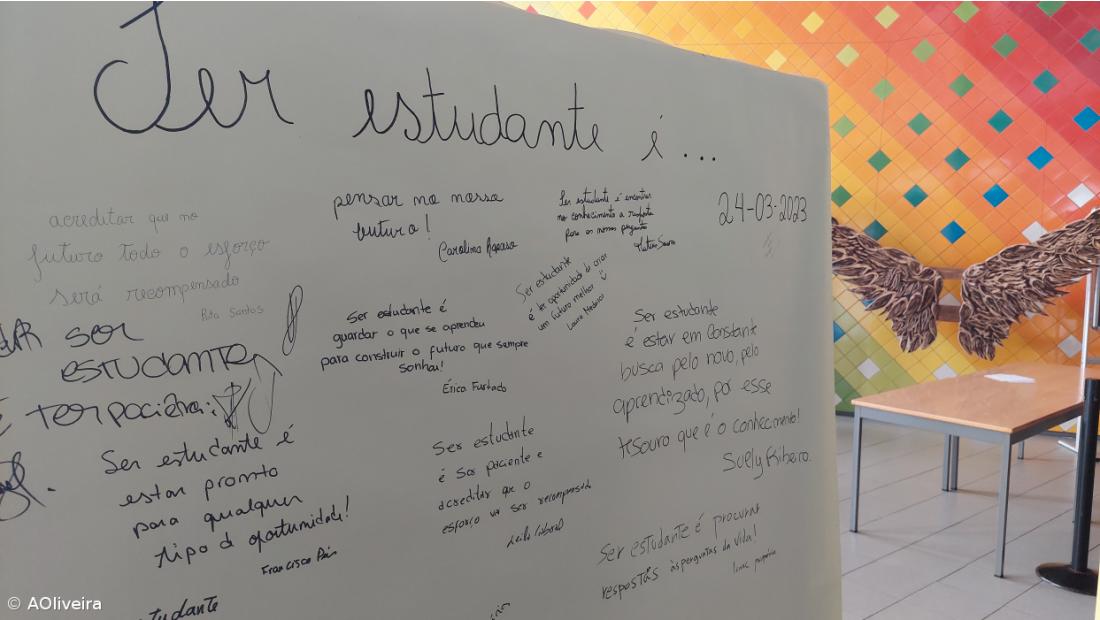 Ser estudante é ...
24-03-2023
acreditar que no
futuro todo o esforço
será recompensado
Rita Santos
pensar no nosso
futuro!
Carolina Raposo
Ser estudante é encontrar
no conhecimento a resposta
para as nossas perguntas
Ser estudante
é ter oportunidade de criar
um futuro melhor
Laura Medeiros
SER
ESTUDANTE
É TER paciência;
Ser estudante é
guardar o que se aprendeu
para construir o futuro que sempre
sonhai!
Érica Furtado
Ser estudante
é estar em constante
busca pelo novo, pelo
aprendizado, por esse
tesouro que é o conhecimento!
Suely Ribeiro.
Ser estudante é
estar pronto
para qualquer
tipo d oportunidade!
Francisco Pais
Ser estudante
é Ser paciente e
acreditar que o
esforço vai ser recompensado
Leila Cabral
Ser estudante é procurar
respostas às perguntas da vida!
estudante
© AOliveira